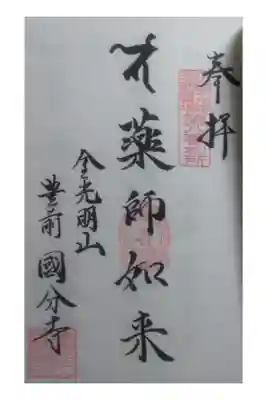 奉拝
薬師如来
金光明山
豊前 國分寺